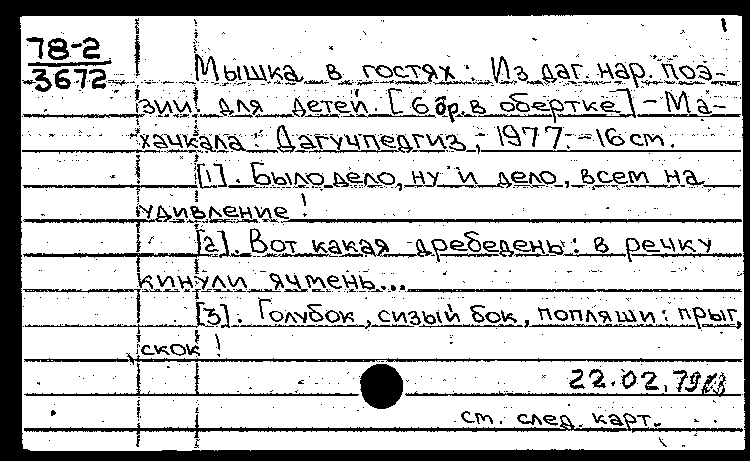 78-2
3672
Мышка в гостях: Из даг. нар. поэ-
зии для детей. [6 бр. в обертке] - Ма-
хачкала: Дагучпедгиз, - 1977. - 16 см.
[1]. Было дело, ну и дело, всем на
удивление!
[2]. Вот какая дребедень: в речку
кинули ячмень...
[3]. Голубок, сизый бок, попляши: прыг,
скок!
22.02.
ст. след. карт.